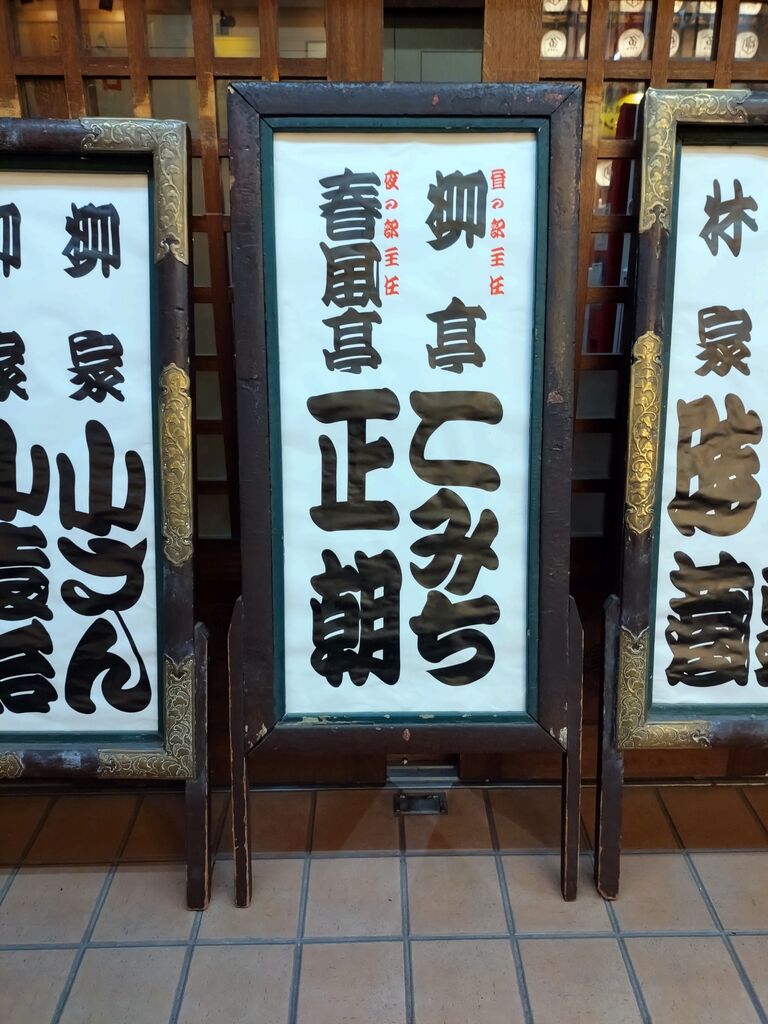 林家
昼の部主任
柳亭こみち
夜の部主任
春風亭正朝
柳家小さん
柳家小袁治